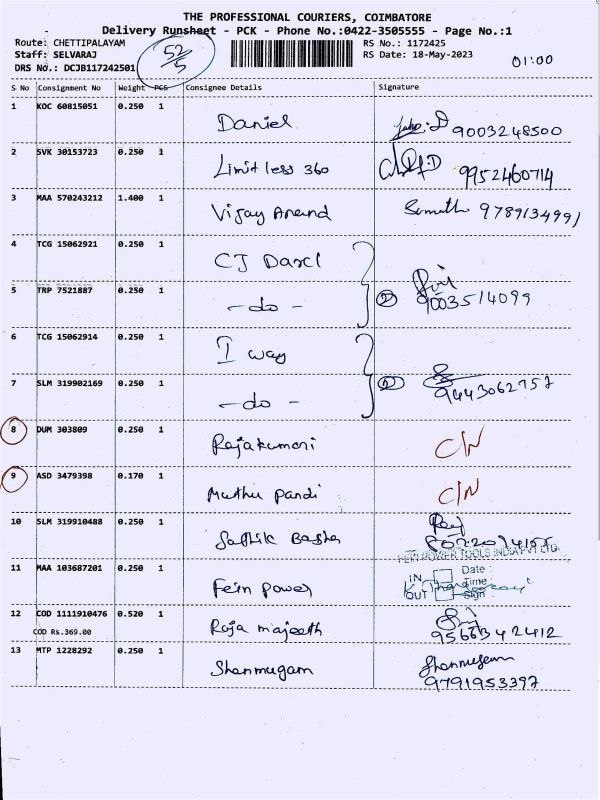 THE PROFESSIONAL COURIERS, COIMBATORE
Delivery Runsheet - PCK - Phone No.:0422-3505555 - Page No.:1
Route: CHETTIPALAYAM 52/5 RS No.: 1172425
Staff: SELVARAJ RS Date: 18-May-2023 01:00
DRS No.: DCJB117242501
S No Consignment No Weight PCS Consignee Details Signature
1 KOC 60815051 0.250 1 Daniel 9003248500
2 SVK 30153723 0.250 1 Limitless 360 9952460714
3 MAA 570243212 1.400 1 Vijay Anand 9789134991
4 TCG 15062921 0.250 1 CJ Darcl
5 TRP 7521887 0.250 1 - do - 2 9003514099
6 TCG 15062914 0.250 1 I way
7 SLM 319902169 0.250 1 - do - 2 9443062757
8 DUM 303809 0.250 1 Rajakumari C/N
9 ASD 3479398 0.170 1 Muthu Pandi C/N
10 SLM 319910488 0.250 1 Sathik Basha
FEIN POWER TOOLS INDIA PVT LTD
11 MAA 103687201 0.250 1 Fein Power
IN Date :
Time :
OUT Sign :
12 COD 1111910476 0.520 1 Raja majeeth 9566342412
COD Rs.369.00
13 MTP 1228292 0.250 1 Shanmugam Shanmugam
9791953397